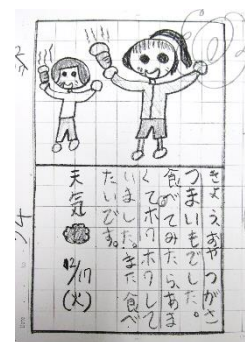 きょう、おやつがさ
つまいもでした。
食べてみたら、あま
くてホクホクして
いました。また食べ
たいです。
天気 12/17 (火)